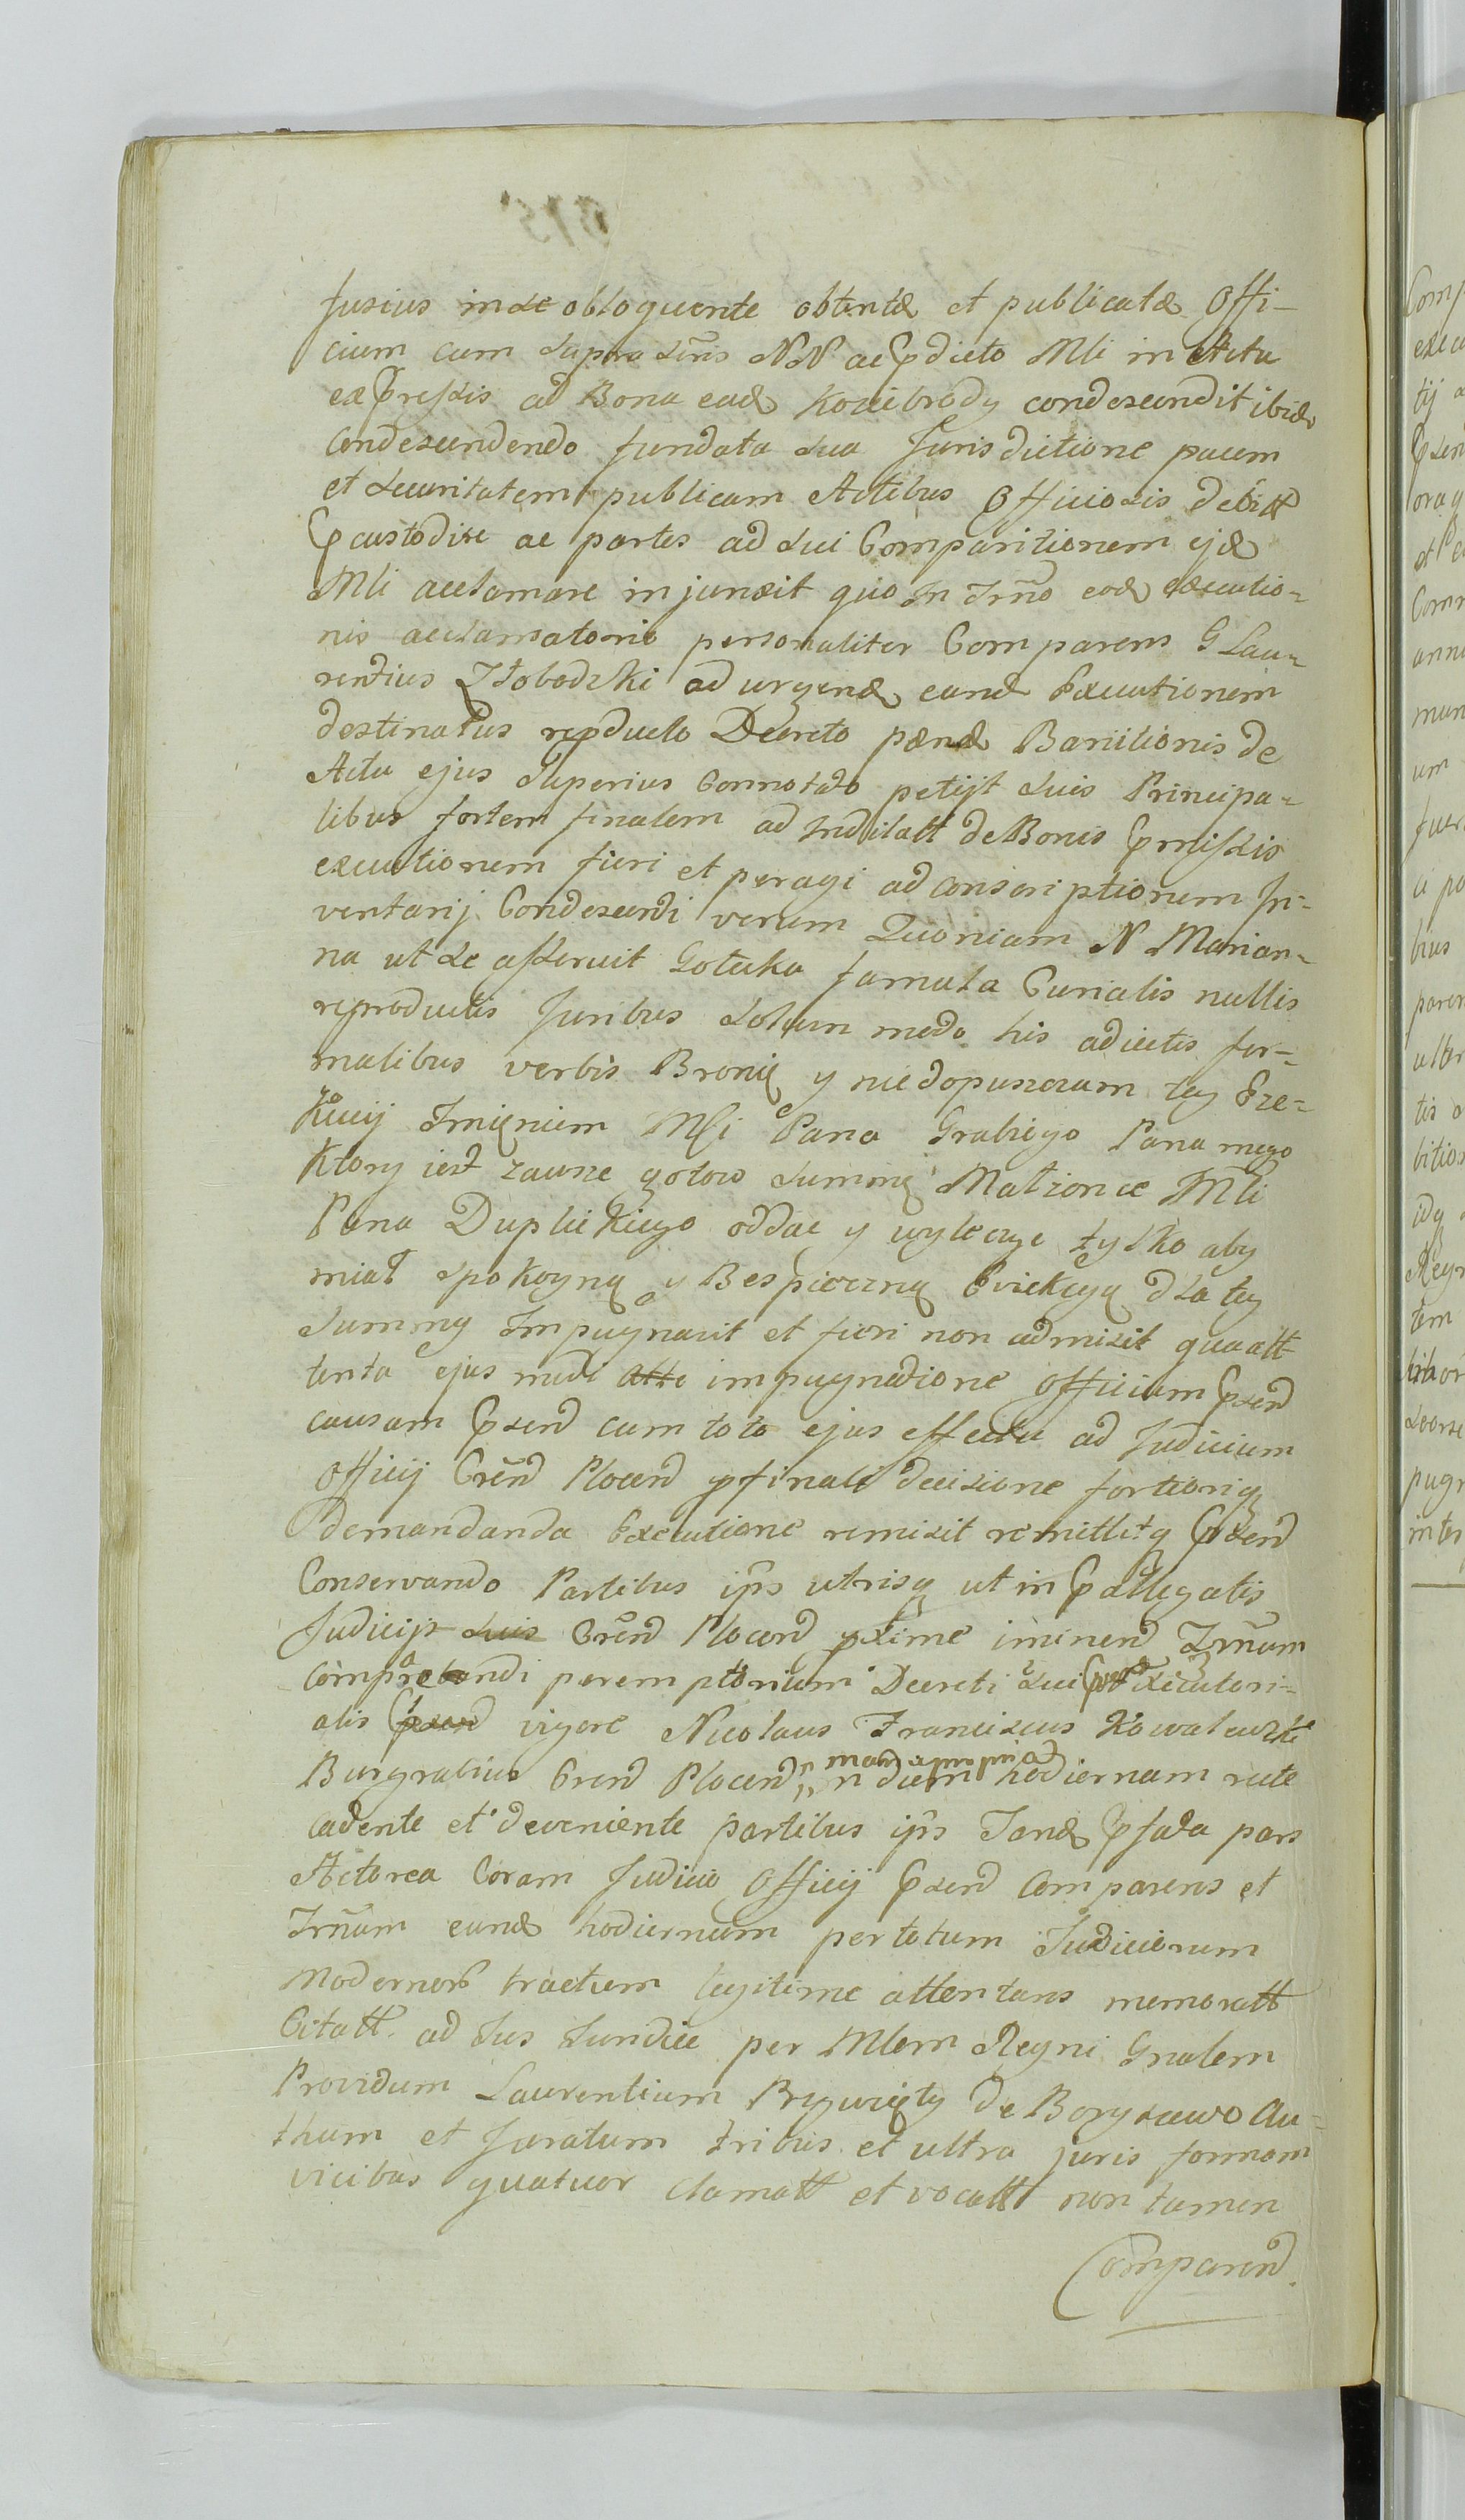 fusius inde obloquente obtentæ et publicatæ Offi-
cium cum supra scris NN ac pdicto Mli in Actu
expressis ad Bona ead Kozibrody condescendit ibid
condescendendo fundata sua Jurisdictione pacem
et securitatem publicam Actibus Officiosis debitt
pcustodire ac partes ad sui Comparitionem ejd
Mli acclamare injunxit quo In Trno eod executio=
nis acclamatorio personaliter Comparens G Lau=
rentius Złobodzki ad urgend eand Executionem
destinatus repducto Decreto pænæ Banitionis de
Actu ejus Superius Connotato petijt suis Principa=
libus fortem finalem ad Inditatt de Bonis pmissis
executionem fieri et peragi ad conscriptionem In=
ventarij Condescendi verum Quoniam N Marian=
na ut se asseruit Gołecka famula Curialis nullis
reproductis Juribus solum modo his adjectis for=
malibus verbis Bronię y nie dopuszczam tey Exe=
kucij Imieniem Mci Pana Grabiego Pana mego
Ktory iest zawsze gotow summę Małżonce Mci
Pana Duplickiego oddac y wyliczyc tylko aby
miał spokoyną y Bespieczną Ewikcyą dla tey
Summy Impugnavit et fieri non admisit qua att
tenta ejus modi impugnatione Officium psend
causam psend cum toto ejus effectu ad Judicium
Officij Crend Plocend p finali decisione fortioriq
demandanda Executione remisit remittitq psend
Conservando Partibus ips utrisq ut in pallegatis
Judicijs suis Crend Plocend pxime iminend Trnum
comparendi peremptorium Decreti sui executori=
alis vigore Nicolaus Franciscus Kowalewski
Burgrabius Crend Plocend manu propria
in diem hodiernam recte
cadente et deveniente partibus ips Tand pfata pars
Actorea Coram Judicio Officij psend Comparens et
Trnum eund hodiernum per totum Judiciorum
Modernor tractum legitime attentans memoratt
Citatt ad Jus Juridice per Mlem Regni Gnalem
Providum Laurentium Przywięty de Boryszewo Au=
thum et Juratum tribus et ultra juris formam
vicibus quatuor clamatt et vocatt non tamen
Comparend